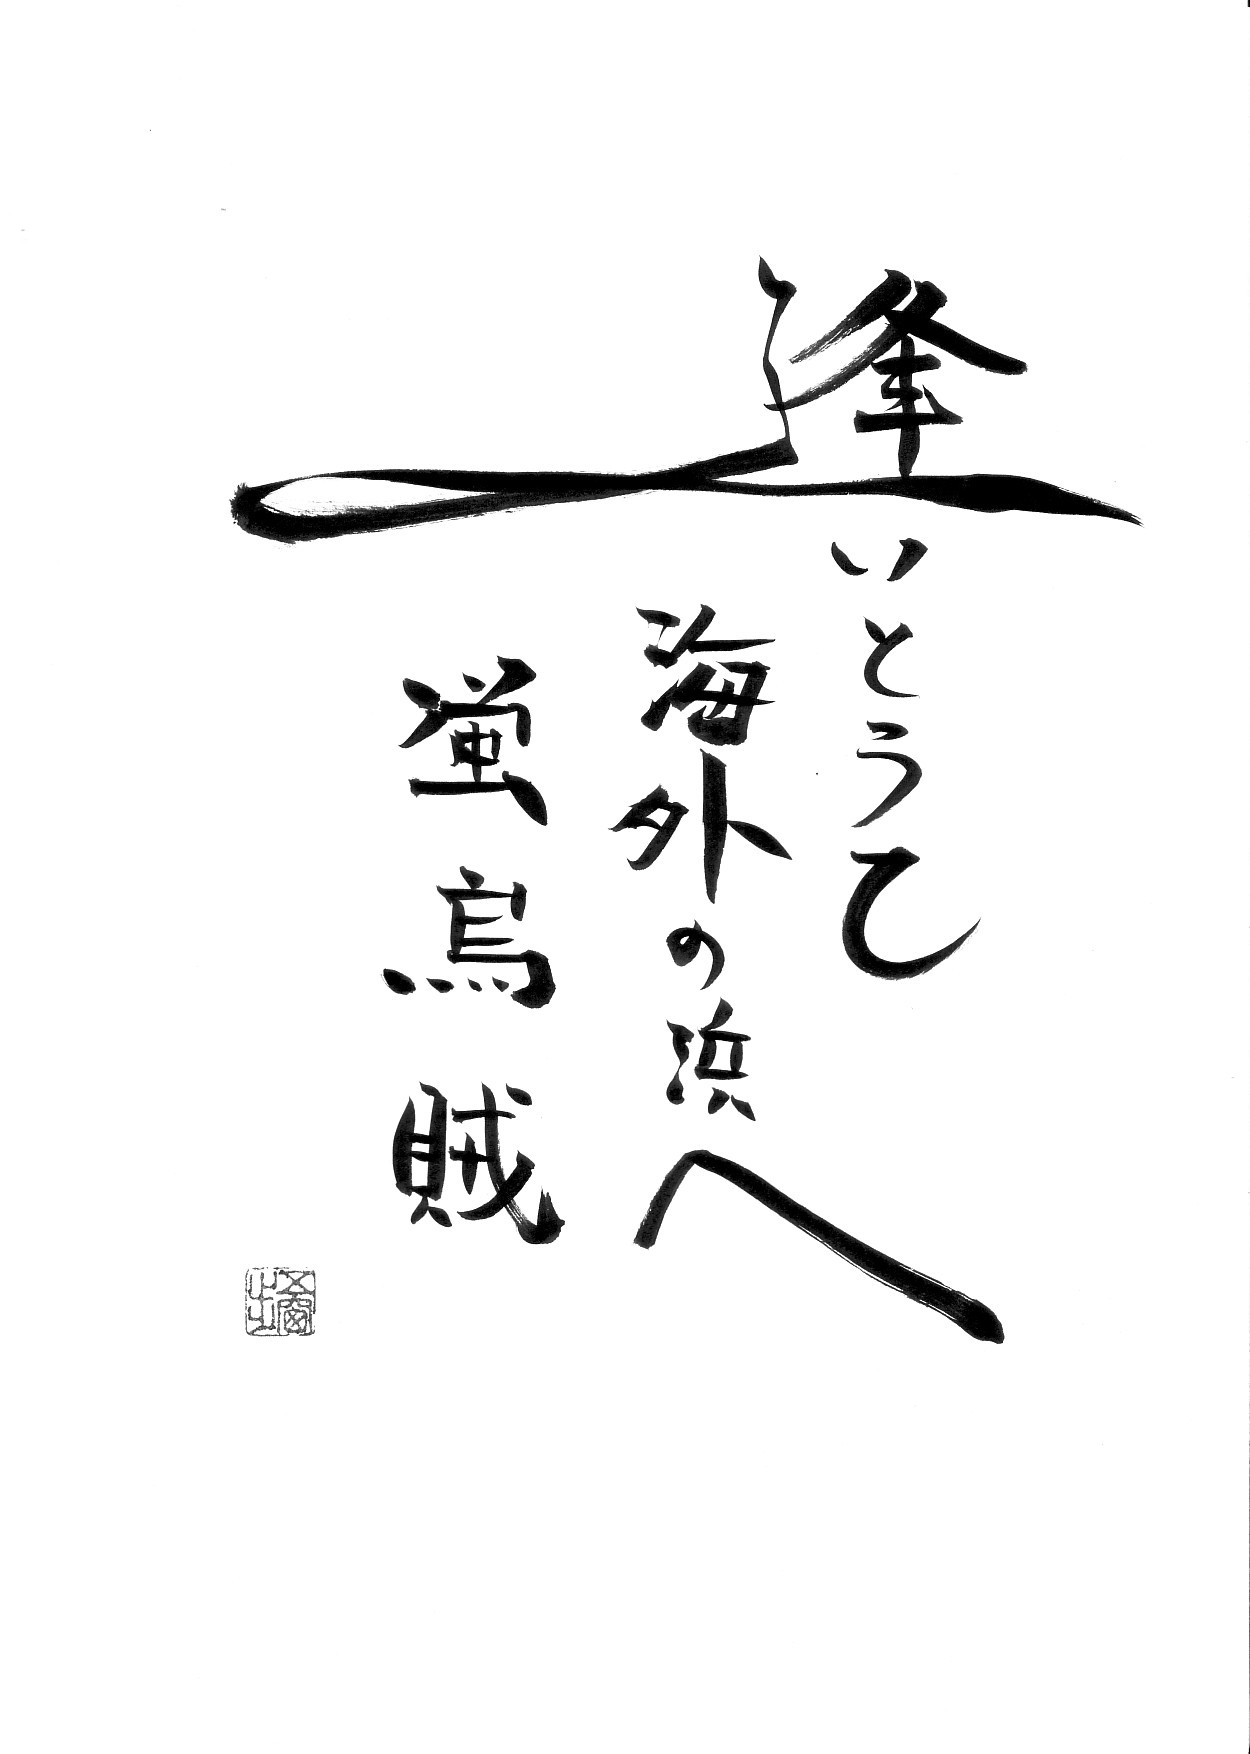 逢いとうて
海外の浜へ
蛍烏賊